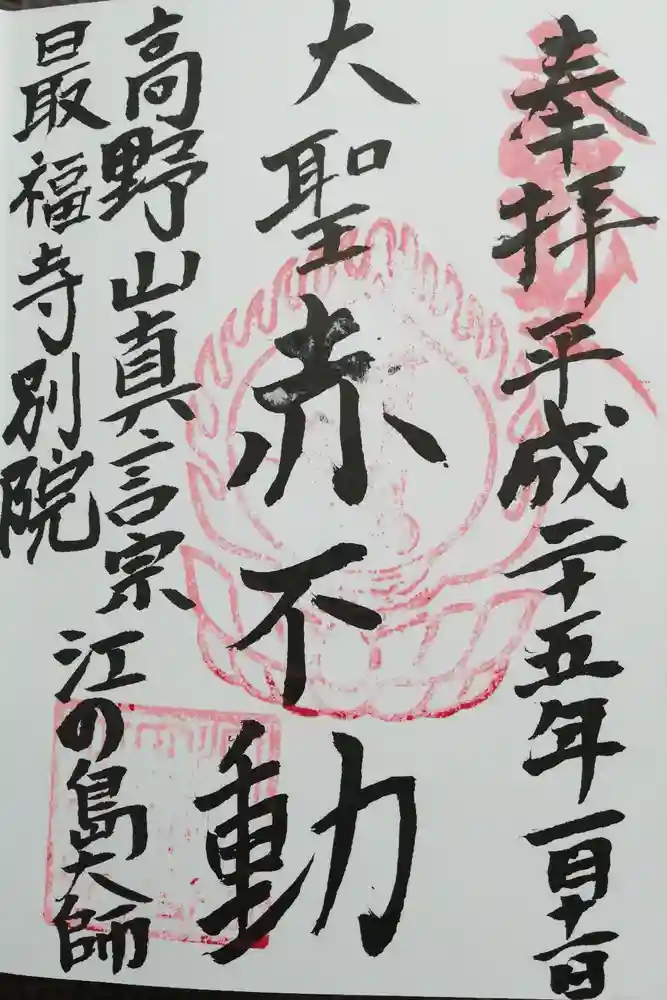 奉拝 平成二十五年一月十一日
大聖赤不動
高野山真言宗
最福寺別院
江の島大師